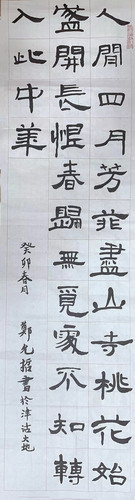 人間四月芳菲盡山寺桃花始
盛開長恨春歸無覓處不知轉
入此中來
癸卯春月 鄭光 書於津沽大地